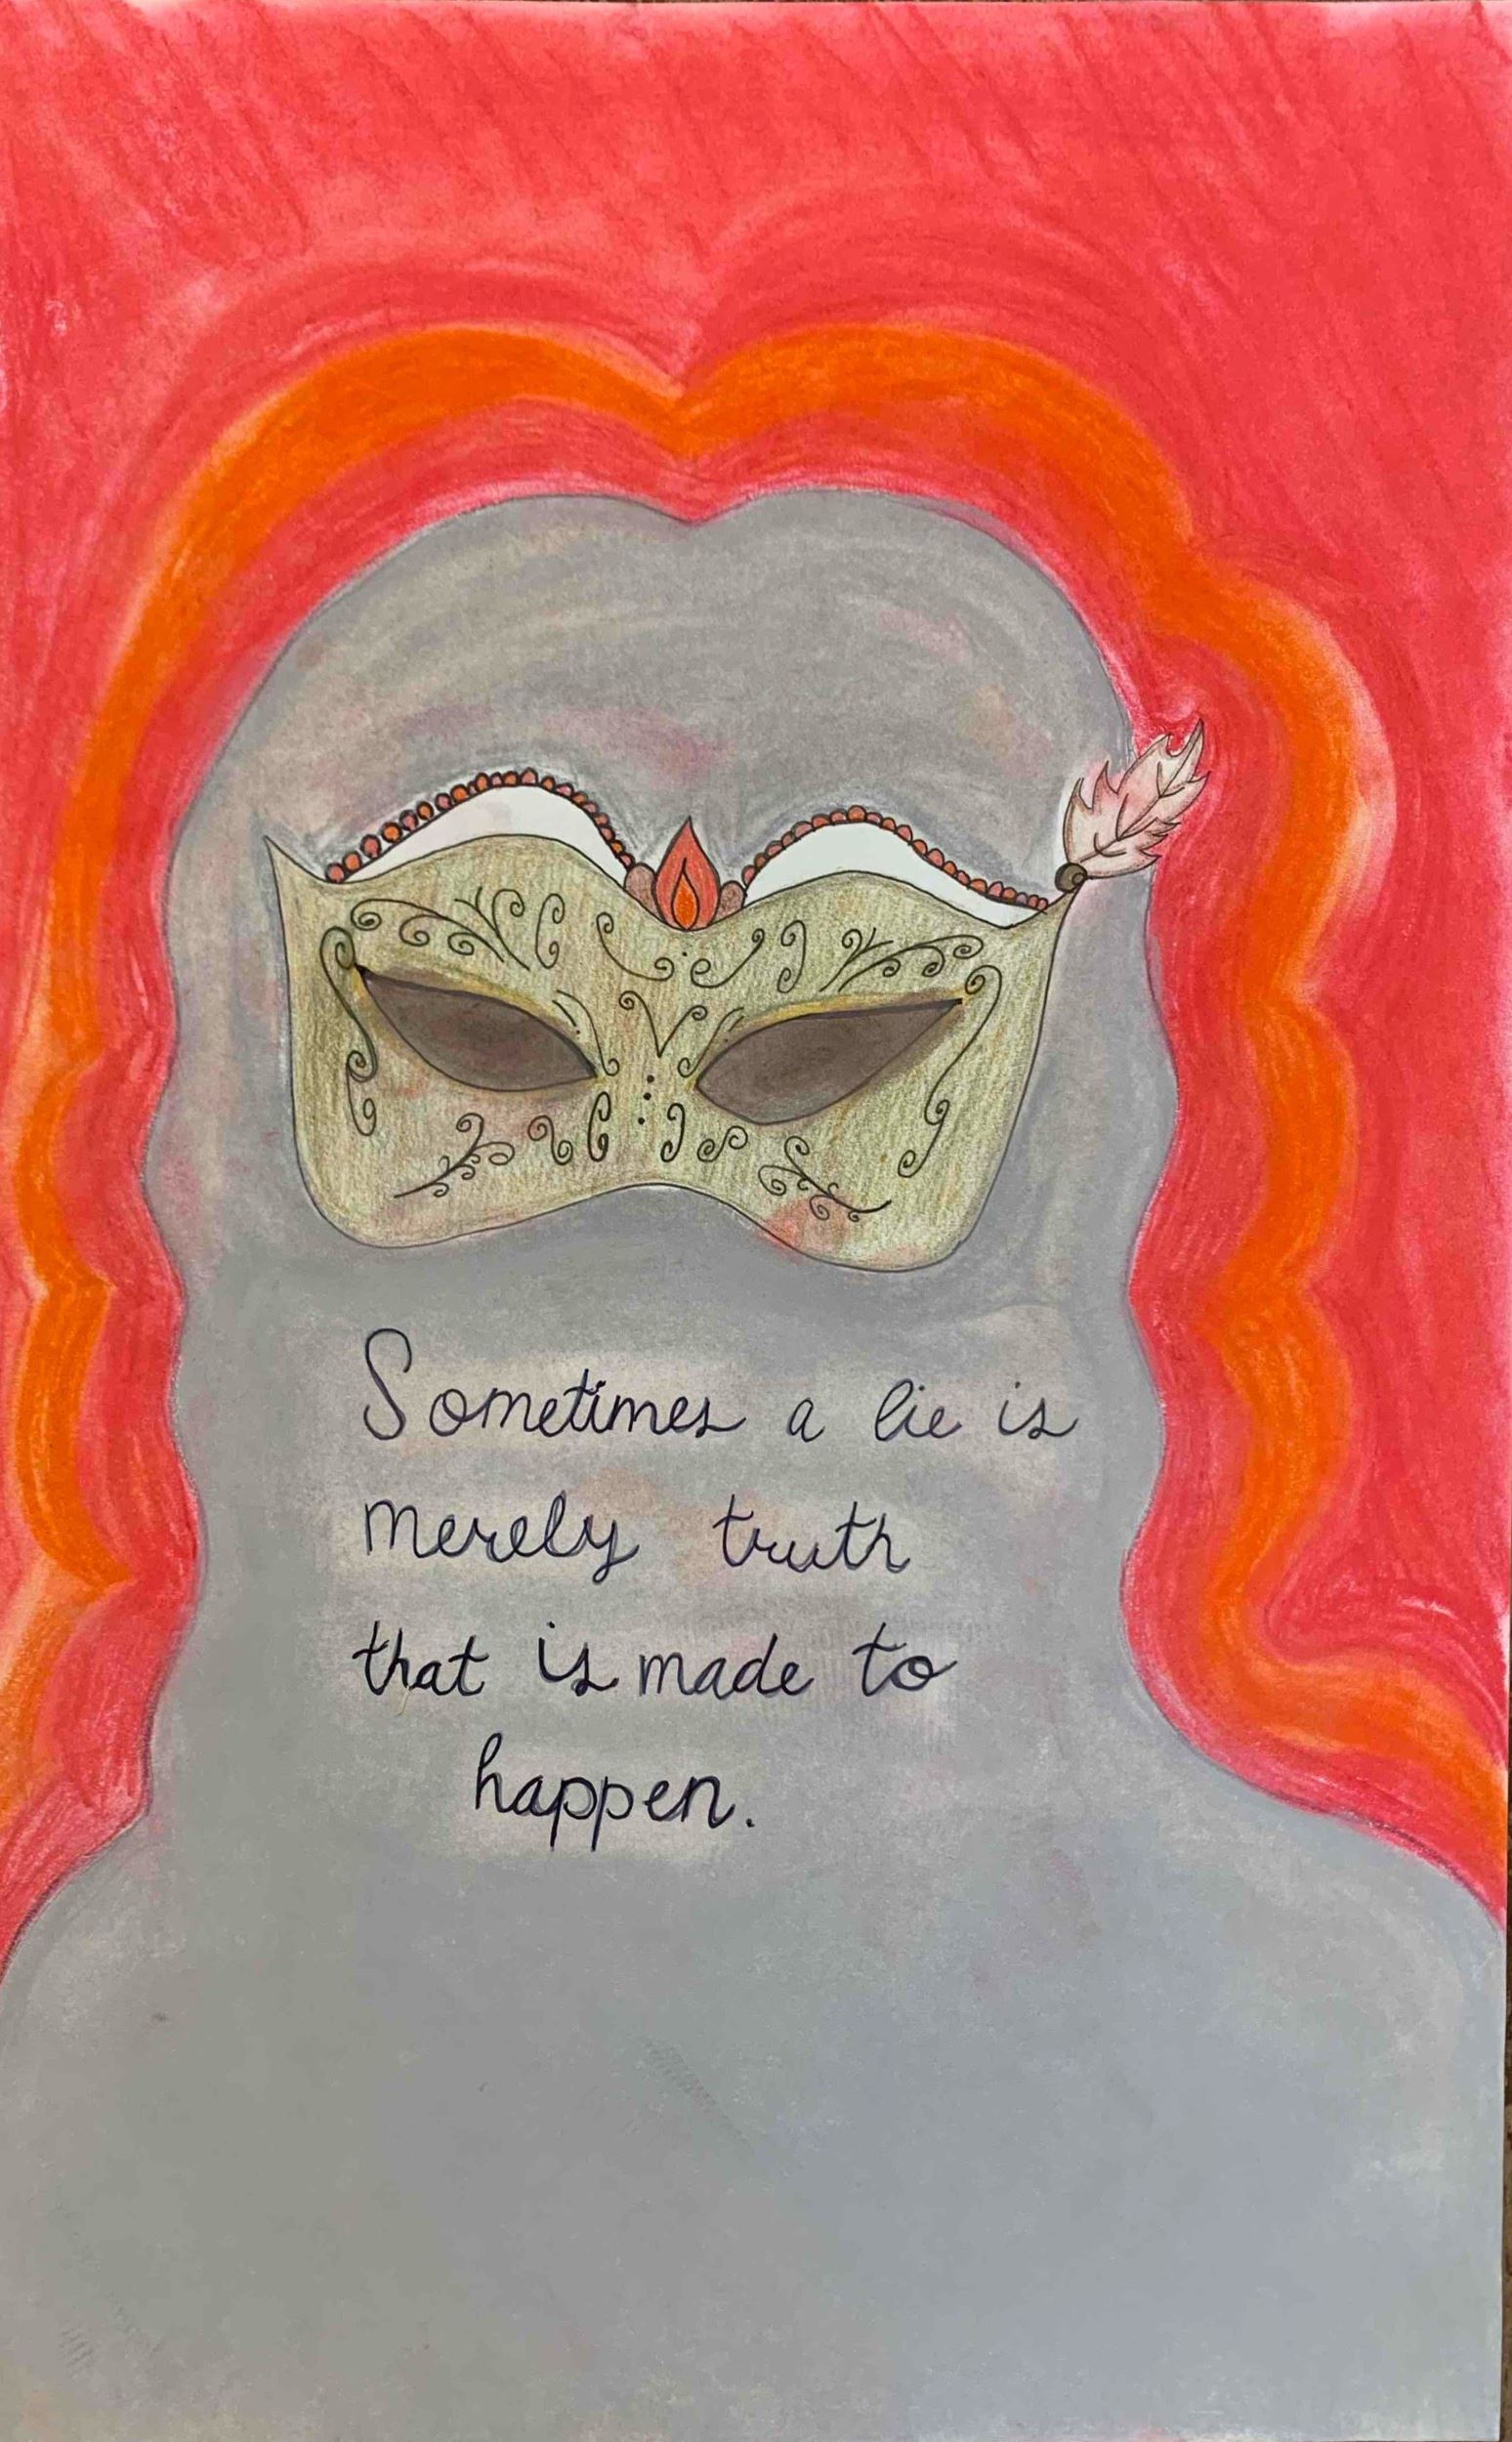 Sometimes a lie is
merely truth
that is made to
happen.